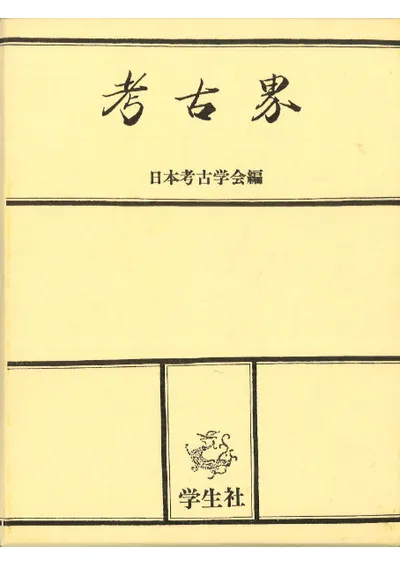 考古界
日本考古学会編
学生社